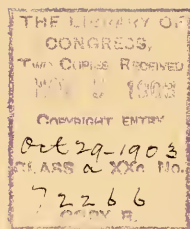 THE LIBRARY OF
CONGRESS,
TWO COPIES RECEIVED
1903
COPYRIGHT ENTRY
Oct 29-1903
CLASS a XXc. No.
72266
COPY B.